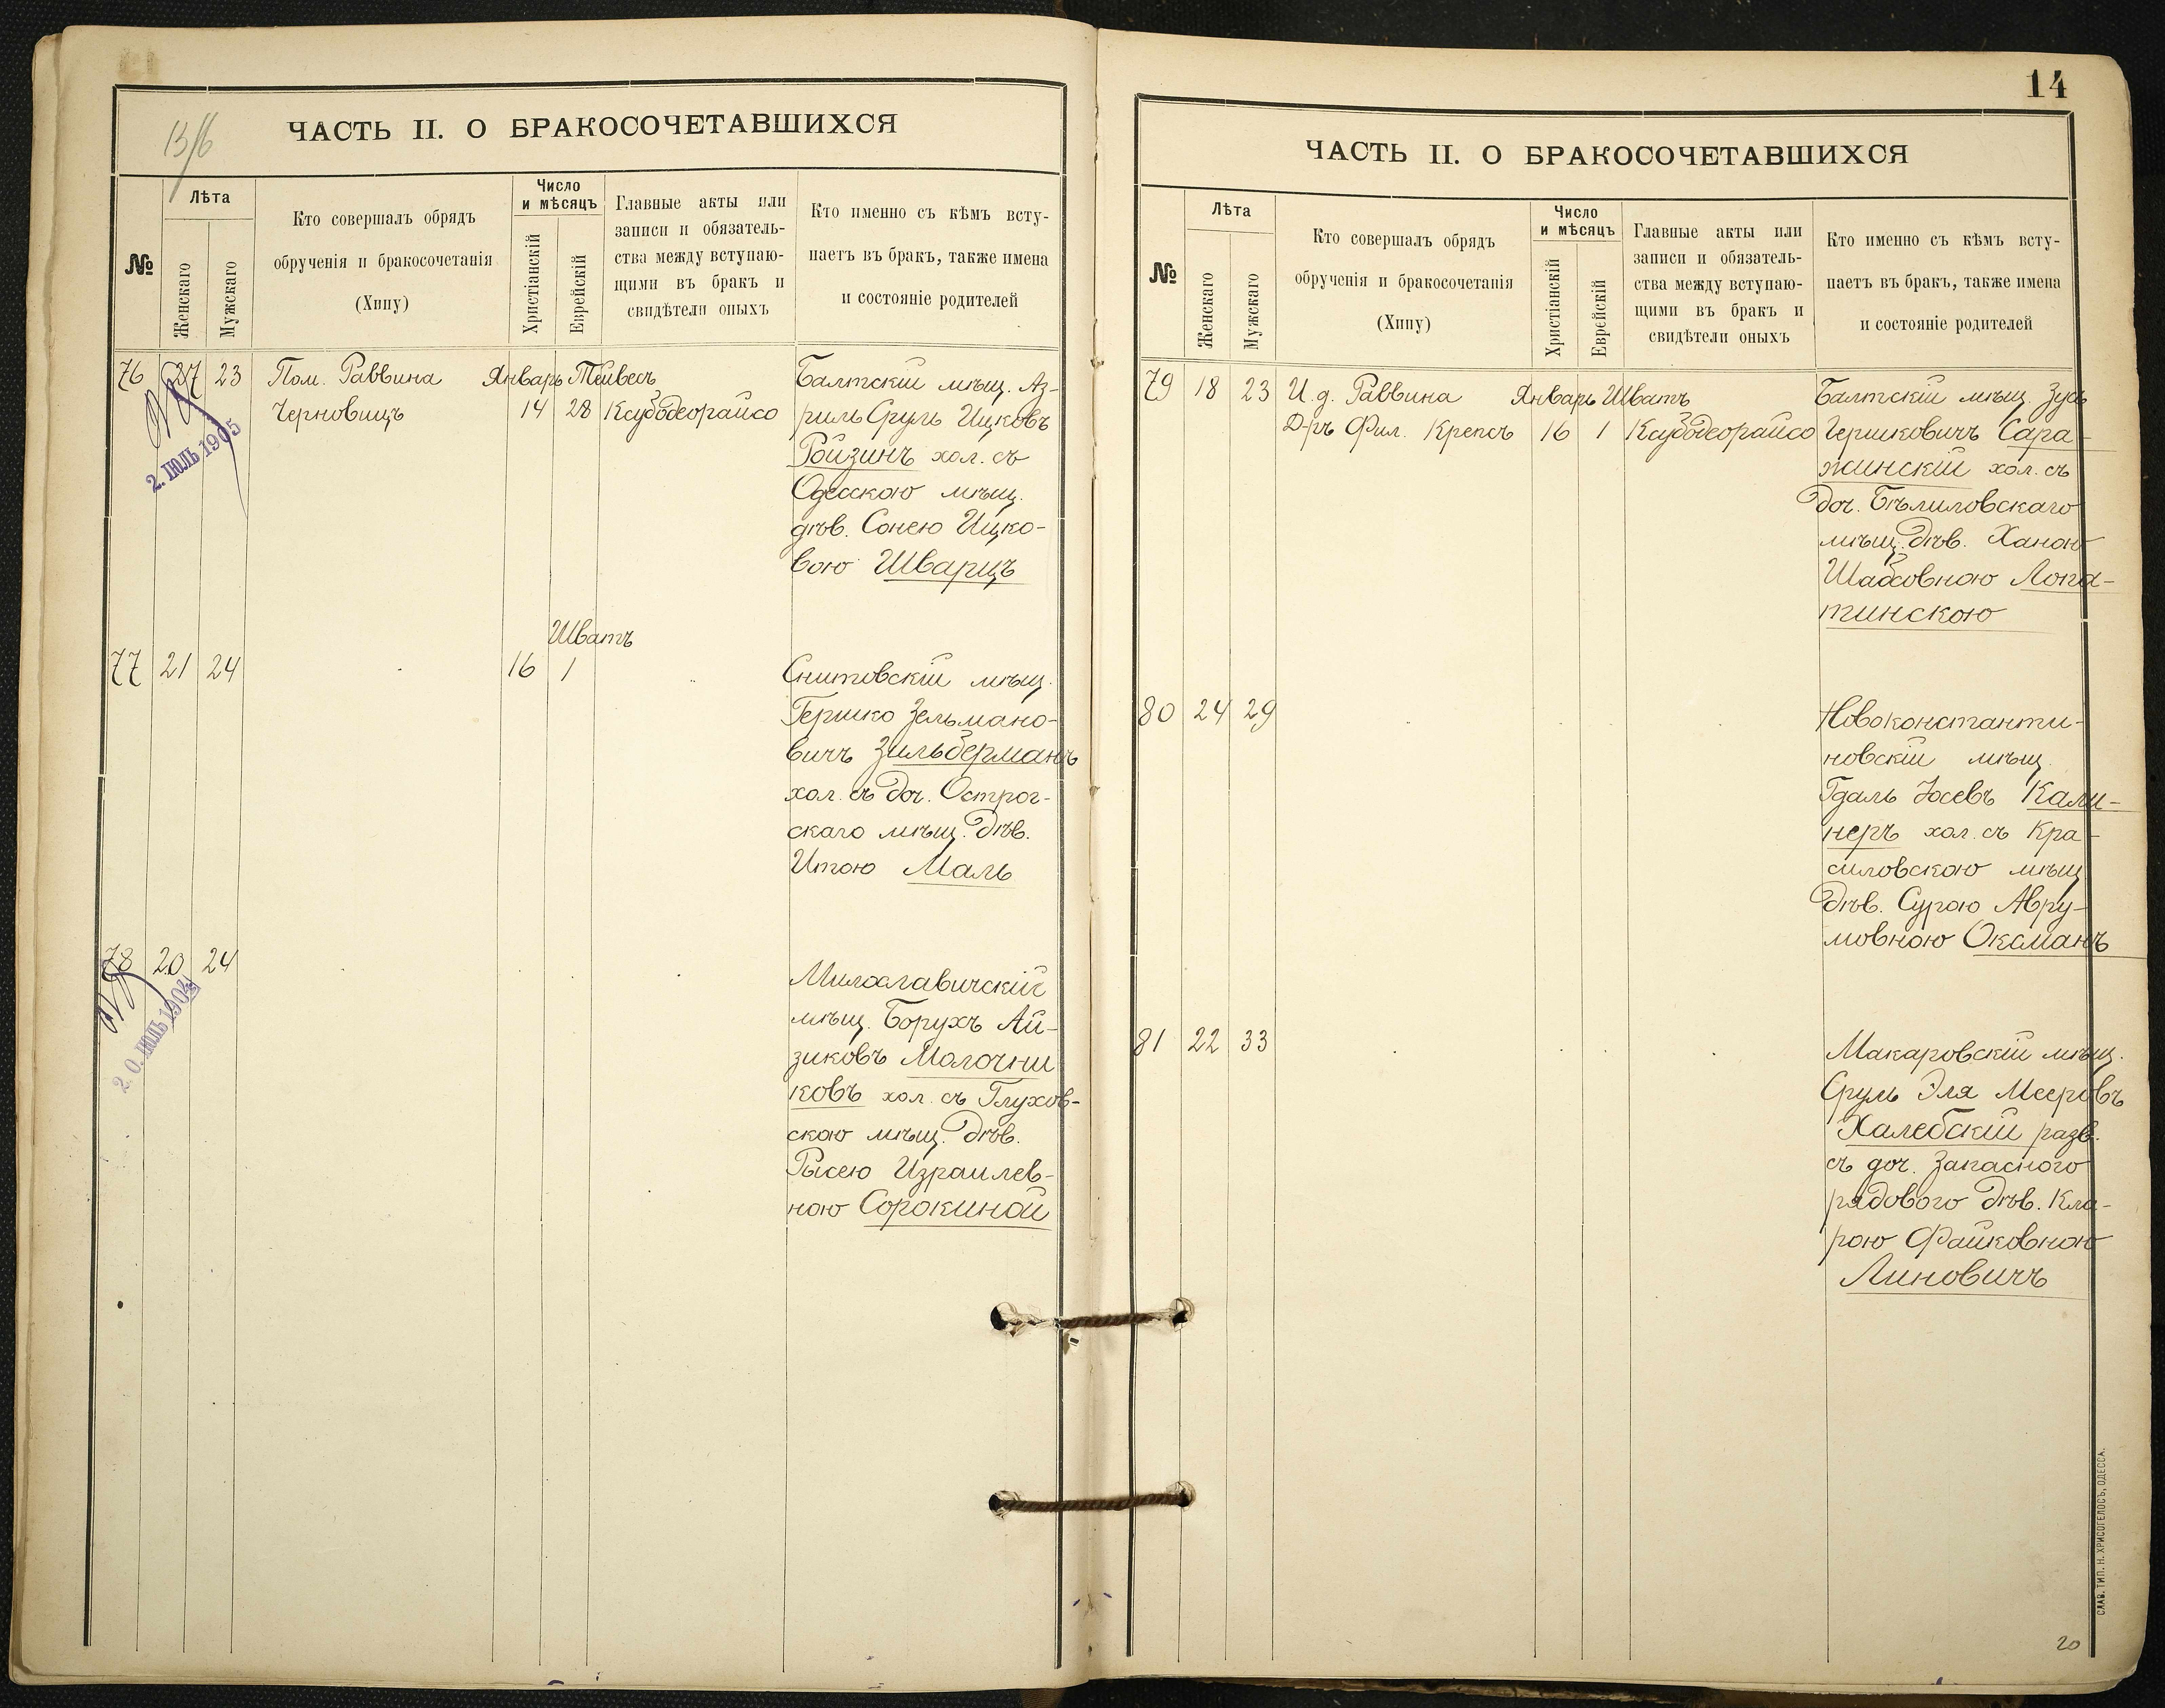 13/16
ЧАСТЬ II. О БРАКОСОЧЕТАВШИХСЯ
№
Лѣта
Женскаго
Мужскаго
Кто совершалъ обрядъ
обрученія и бракосочетанія
(Хипу)
Число
и мѣсяцъ
Христіанскій
Еврейскій
Главные акты или
записи и обязатель-
ства между вступаю-
щими въ бракъ и
свидѣтели оныхъ
Кто именно съ кѣмъ всту-
паетъ въ бракъ, также имена
и состояніе родителей
76 27 23 Пом. Раввина Январь Тейвесъ
Черновицъ 14 28 Ксубодеорайсо
Балтскій мѣщ. Аз-
риль Сруль Ицковъ
Ройзинъ хол. съ
Одесскою мѣщ.
дѣв. Сонею Ицко-
вою Шварцъ
2. ІЮЛЬ 1905
Шватъ
77 21 24 16 1
Снитовскій мѣщ.
Гершко Зельмано-
вичъ Зильберманъ
хол. съ доч. Острог-
скаго мѣщ. дѣв.
Итою Маль
78 20 24
Милославичскій
мѣщ. Борухъ Ай-
зиковъ Молочни
ковъ хол. съ Глухов-
скою мѣщ. дѣв.
Рысею Израилев-
ною Сорокиной
2 0. ІЮЛЬ 1904
14
ЧАСТЬ II. О БРАКОСОЧЕТАВШИХСЯ
№
Лѣта
Женскаго
Мужскаго
Кто совершалъ обрядъ
обрученія и бракосочетанія
(Хипу)
Число
и мѣсяцъ
Христіанскій
Еврейскій
Главные акты или
записи и обязатель-
ства между вступаю-
щими въ бракъ и
свидѣтели оныхъ
Кто именно съ кѣмъ всту-
паетъ въ бракъ, также имена
и состояніе родителей
79 18 23 И. д. Раввина Январь Шватъ
Д-ръ Фил. Крепсъ 16 1 Ксубодеорайсо
Балтскій мѣщ. Зусь
Гершковичъ Сара-
жинскій хол. съ
доч. Бѣлиловскаго
мѣщ. дѣв. Ханою
Шабсовною Лопа-
тинскою
80 24 29
Новоконстанти-
новскій мѣщ.
Гдаль Іосевъ Кали-
неръ хол. съ Кра-
силовскою мѣщ
дѣв. Сурою Авру-
мовною Оксманъ
81 22 33
Макаровскій мѣщ.
Сруль Эля Мееровъ
Халебскій разв.
съ доч. Запасного
рядового дѣв. Кла-
рою Файковною
Линовичъ
СЛАВ. ТИП. Н. ХРИСОГЕЛОСЪ, ОДЕССА.
20